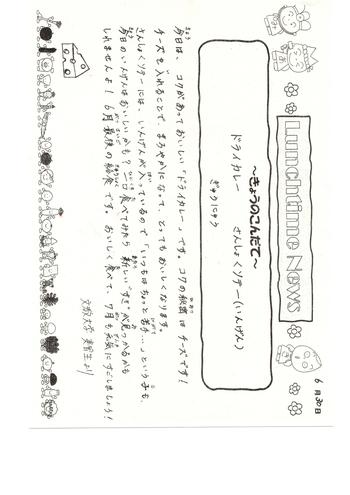 6月30日
Lunchtime News
〜きょうのこんだて〜
ドライカレー　さんしょくソテー(いんげん)
ぎゅうにゅう
今日は、コクがあっておいしい「ドライカレー」です。コクの秘密はチーズです!
チーズを入れることで、まろやかになって、とってもおいしくなります。
さんしょくソテーには、いんげんが入っているので「いつもはちょっと苦手…」という子も、
今日のいんげんはおいしいかも?一口食べてみたら新しい"すき"が見つかるかも
しれませんよ!6月最後の給食です。おいしく食べて、7月も元気にすごしましょう!
文教大学 実習生より